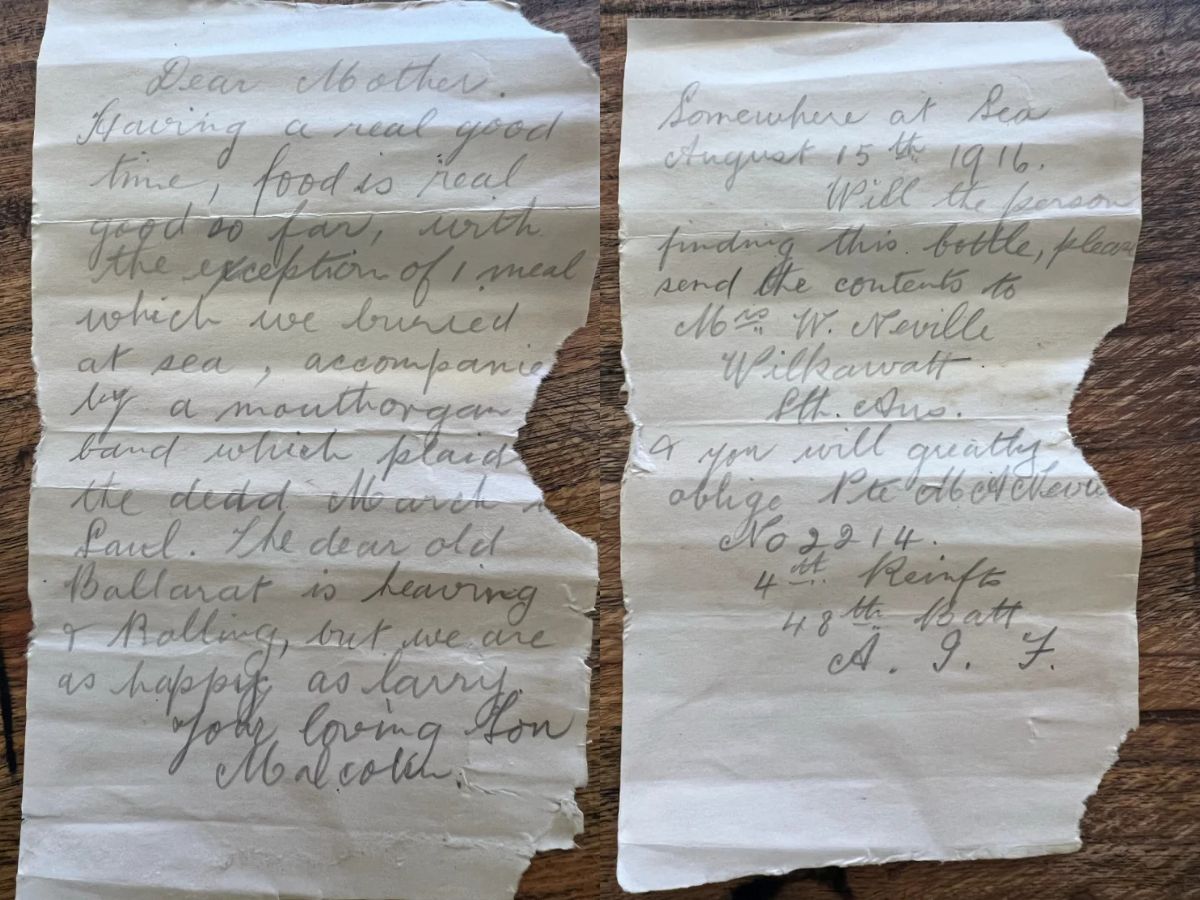 Dear Mother.
Having a real good
time, food is real
good so far, with
the exception of 1 meal
which we buried
at sea, accompanie
by a mouthorgan
band which plaid
the dedd March
Saul. The dear old
Ballarat is heaving
& Rolling, but we are
as happy as larry.
Your loving Son
Malcolm.
Somewhere at Sea
August 15th 1916.
Will the person
finding this bottle, pleas
send the contents to
Mrs W. Neville
Wilkawatt
Sth. Aus.
& you will greatly
oblige Pte M A Nevi
No 2214.
4th Reinfts
48th Batt
A. I. F.